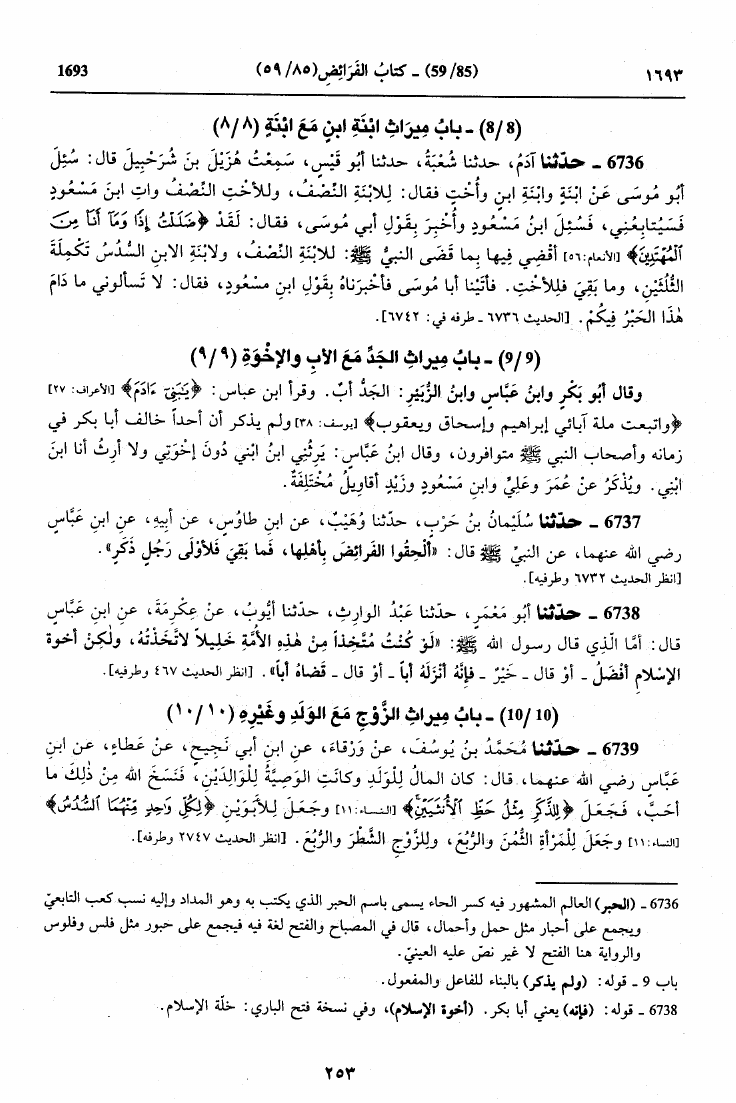 ١٦٩٣ (59/85) - كتابُ الفَرَائِضِ (٥٩/٨٥) 1693
(8/8) - بابُ مِيرَاثِ ابْنَةِ ابنٍ مَعَ ابْنَةٍ (٨/٨)
6736 - حدّثنا آدَمُ، حدثنا شُعْبَةُ، حدثنا أبُو قَيْسٍ، سَمِعْتُ هُزَيْلَ بنَ شُرَحْبِيلَ قال: سُئِلَ
أبُو مُوسَى عَنْ ابْنَةٍ وابْنَةِ ابنٍ وأُخْتٍ فقال: لِلابْنَةِ النِّصْفُ، وللأُخْتِ النِّصْفُ وأتِ ابنَ مَسْعُودٍ
فَسَيُتابِعُنِي، فَسُئِلَ ابنُ مَسْعُودٍ وأُخْبِرَ بِقَوْلِ أبي مُوسَى، فقال: لَقَدْ ﴿ضَلَلْتُ إِذًا وَمَا أَنَا مِنَ
الْمُهْتَدِينَ﴾ [الأنعام: ٥٦] أقْضِي فِيها بِما قَضَى النبيُّ ﷺ: للابْنَةِ النِّصْفُ، ولابْنَةِ الابنِ السُّدُسُ تَكْمِلَةَ
الثُّلُثَيْنِ، وما بَقِيَ فَلِلأُخْتِ. فأتَيْنا أبا مُوسَى فأخْبَرناهُ بِقَوْلِ ابنِ مسعُودٍ، فقال: لا تَسألوني ما دَامَ
هٰذا الحَبْرُ فِيكُمْ. [الحديث ٦٧٣٦ - طرفه في: ٦٧٤٢].
(9/9) - بابُ مِيراثِ الجَدِّ مَعَ الأبِ والإخْوَةِ (٩/٩)
وقال أبُو بَكْرٍ وابنُ عَبَّاسٍ وابنُ الزُّبَيْرِ: الجَدُّ أبٌ. وقرأ ابن عباس: ﴿يَٰبَنِىٓ ءَادَمَ﴾ [الأعراف: ٢٧]
﴿واتبعت ملة آبائي إبراهيم وإسحاق ويعقوب﴾ [يوسف: ٣٨] ولم يذكر أن أحداً خالف أبا بكر في
زمانه وأصحاب النبي ﷺ متوافرون، وقال ابنُ عَبَّاسٍ: يَرِثُنِي ابنُ ابْنِي دُونَ إخْوَتِي ولا أرِثُ أنا ابنَ
ابْنِي. ويُذْكَرُ عنْ عُمَرَ وعَلِيٍّ وابنِ مَسْعُودٍ وزَيْدٍ أقاوِيلُ مُخْتَلِفَةٌ.
6737 - حدّثنا سُلَيْمانُ بنُ حَرْبٍ، حدّثنا وُهَيْبٌ، عن ابنِ طاوُسٍ، عن أبِيهِ، عنِ ابنِ عَبَّاسٍ
رضي الله عنهما، عن النبيِّ ﷺ قال: «ألْحِقُوا الفَرائِضَ بِأهْلِها، فَما بَقِيَ فَلأوْلَى رَجُلٍ ذَكَرٍ».
[انظر الحديث ٦٧٣٢ وطرفيه].
6738 - حدّثنا أبُو مَعْمَرٍ، حدّثنا عَبْدُ الوارِثِ، حدّثنا أيُّوبُ، عنْ عِكْرِمَةَ، عنِ ابنِ عَبَّاسٍ
قال: أمَّا الَّذِي قال رسولُ الله ﷺ: «لَوْ كُنْتُ مُتَّخِذاً مِنْ هٰذِهِ الأُمَّةِ خَلِيلاً لاتَّخَذْتُهُ، ولٰكِنْ أخوة
الإسْلامِ أفْضَلُ - أوْ قال - خَيْرٌ - فإنَّهُ أنْزَلَهُ أباً - أوْ قال - قَضاهُ أباً». [انظر الحديث ٤٦٧ وطرفيه].
(10/10) - بابُ مِيراثِ الزَّوْجِ مَعَ الوَلَدِ وغَيْرِهِ (١٠/١٠)
6739 - حدّثنا مُحَمَّدُ بنُ يُوسُفَ، عنْ وَرْقاءَ، عنِ ابنِ أبي نَجِيحٍ، عنْ عَطاءٍ، عن ابنِ
عَبَّاسٍ رضي الله عنهما، قال: كان المالُ لِلْوَلَدِ وكانَتِ الوَصِيَّةُ لِلْوَالِدَيْنِ، فَنَسَخَ الله مِنْ ذٰلِكَ ما
أحَبَّ، فَجَعَلَ ﴿لِلذَّكَرِ مِثْلُ حَظِّ الْأُنثَيَيْنِ﴾ [النساء: ١١] وجَعَلَ لِلأبَوَيْنِ ﴿لِكُلِّ وَاحِدٍ مِّنْهُمَا السُّدُسُ﴾
[النساء: ١١] وجَعَلَ لِلْمَرْأةِ الثُّمُنَ والرُّبُعَ، ولِلزَّوْجِ الشَّطْرَ والرُّبُعَ. [انظر الحديث ٢٧٤٧ وطرفه].
6736 - (الحبر) العالم المشهور فيه كسر الحاء يسمى باسم الحبر الذي يكتب به وهو المداد وإليه نسب كعب التابعيّ
ويجمع على أحبار مثل حمل وأحمال، قال في المصباح والفتح لغة فيه فيجمع على حبور مثل فلس وفلوس
والرواية هنا الفتح لا غير نصّ عليه العينيّ.
باب 9 - قوله: (ولم يذكر) بالبناء للفاعل والمفعول.
6738 - قوله: (فإنه) يعني أبا بكر. (أخوة الإسلام)، وفي نسخة فتح الباري: خلّة الإسلام.
٢٥٣